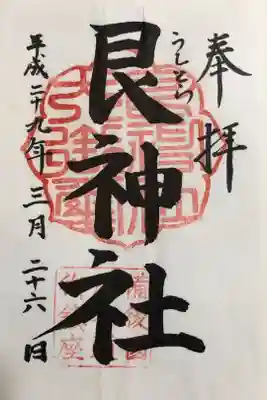 奉拝
うしとら
艮神社
平成二十九年 三月 二十六日
備後国